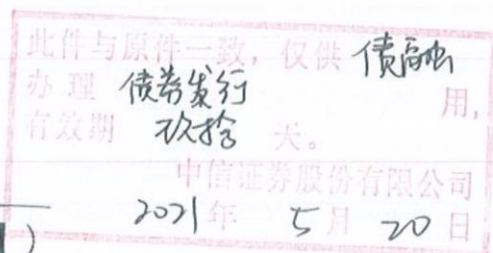 此件与原件一致，仅供 债融
办理 债券发行 用，
有效期 玖拾 天。
中信证券股份有限公司
2021年 5月 20日